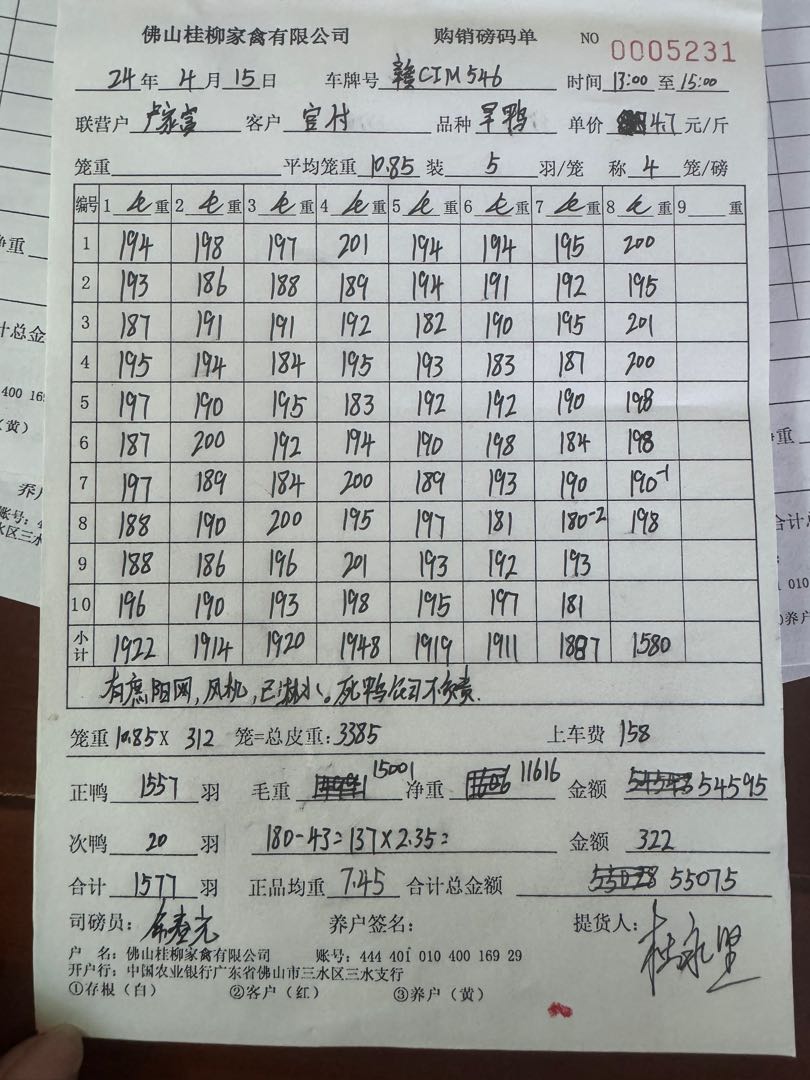 佛山桂柳家禽有限公司 购销磅码单 NO 0005231
24年4月15日 车牌号 赣CIM546 时间 13:00至15:00
联营户 卢家富 客户 官村 品种 旱鸭 单价 4.7 元/斤
笼重 平均笼重 10.85 装 5 羽/笼 称 4 笼/磅
编号 1 毛重 2 毛重 3 毛重 4 毛重 5 毛重 6 毛重 7 毛重 8 毛重 9 重
1 194 198 197 201 194 194 195 200
2 193 186 188 189 194 191 192 195
3 187 191 191 192 182 190 195 201
4 195 194 184 195 193 183 187 200
5 197 190 195 183 192 192 190 198
6 187 200 192 194 190 198 184 198
7 197 189 184 200 189 193 190 190-1
8 188 190 200 195 197 181 180-2 198
9 188 186 196 201 193 192 193
10 196 190 193 198 195 197 181
小计 1922 1914 1920 1948 1919 1911 1887 1580
有遮阳网,风机,已淋水。死鸭公司不负责.
笼重 10.85 X 312 笼=总皮重:3385 上车费 158
正鸭 1557 羽 毛重 15001 净重 11616 金额 54595
次鸭 20 羽 180-43=137X2.35= 金额 322
合计 1577 羽 正品均重 7.45 合计总金额 55075
司磅员: 养户签名: 提货人:
户 名:佛山桂柳家禽有限公司 账号:444 401 010 400 169 29
开户行:中国农业银行广东省佛山市三水区三水支行
①存根(白) ②客户(红) ③养户(黄)